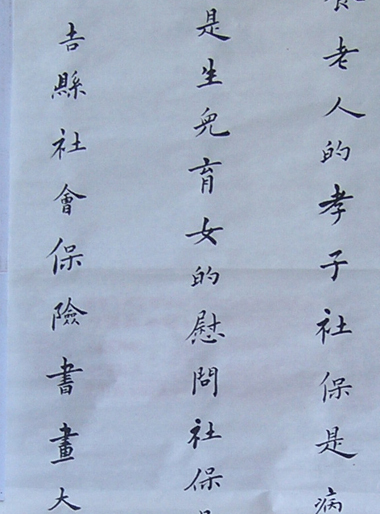 老人的孝子社保是病
是生兒育女的慰問社保
吉縣社會保險書畫大